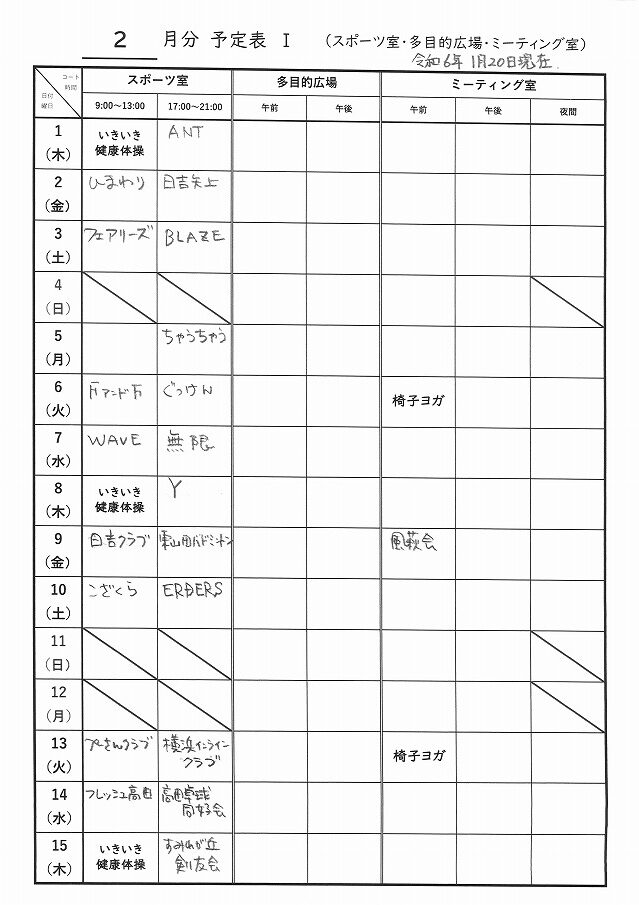 2 月分 予定表 Ⅰ （スポーツ室・多目的広場・ミーティング室）
令和6年 1月20日現在
コート 時間 日付 曜日
スポーツ室 多目的広場 ミーティング室
9:00～13:00 17:00～21:00 午前 午後 午前 午後 夜間
1 (木) いきいき 健康体操 ANT
2 (金) ひまわり 日吉矢上
3 (土) フェアリーズ BLAZE
4 (日)
5 (月) ちゃうちゃう
6 (火) 万アンド万 ぐっけん 椅子ヨガ
7 (水) WAVE 無限
8 (木) いきいき 健康体操 Y
9 (金) 日吉クラブ 東山田バドミントン 風萩会
10 (土) こざくら ERBERS
11 (日)
12 (月)
13 (火) プーさんクラブ 横浜インラインクラブ 椅子ヨガ
14 (水) フレッシュ高田 高田卓球同好会
15 (木) いきいき 健康体操 すみれが丘剣友会